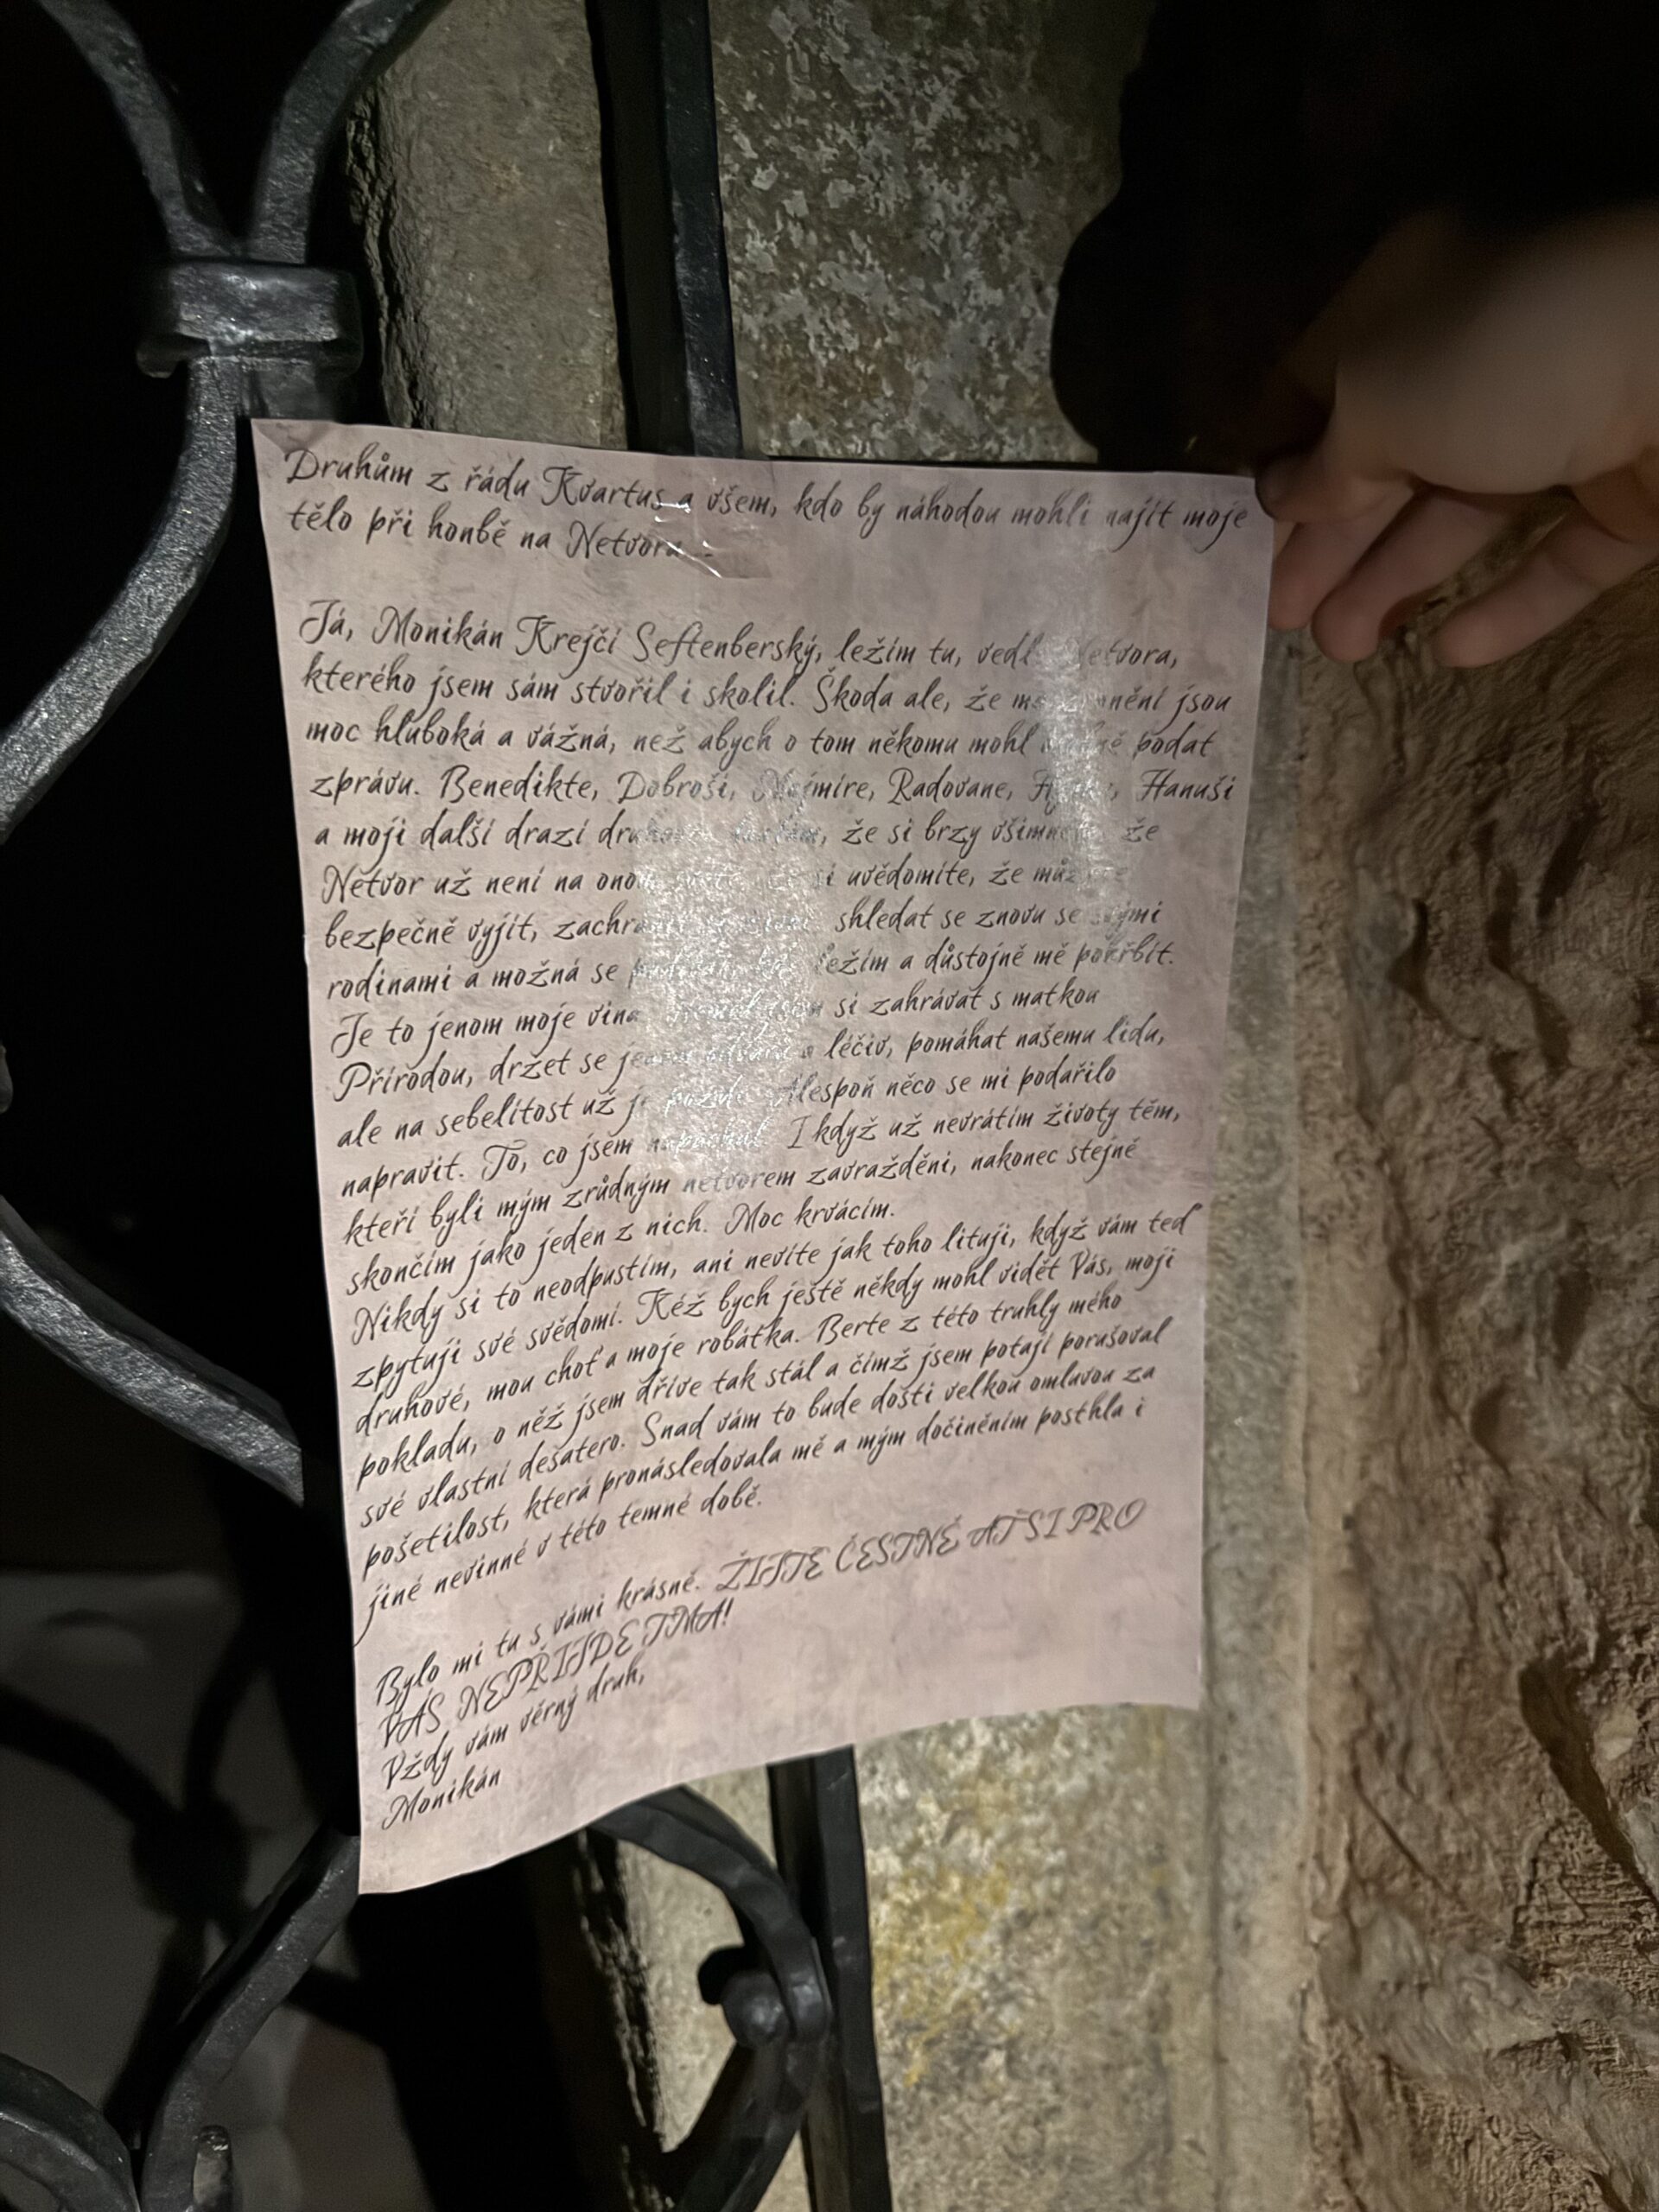 Druhům z řádu Kvartus a všem, kdo by náhodou mohli najít moje
tělo při honbě na Netvora
Já, Monikán Krejčí Seftenberský, ležím tu, Netvora,
kterého jsem sám stvořil i skolil. Škoda ale, že jsou
moc hluboká a vážná, než abych o tom někomu mohl podat
zprávu. Benedikte, Dobroši, Mojmíre, Radovane, Hanuši
a moji další drazí že si brzy že
Netvor už není na i uvědomíte, že
bezpečně vyjít, shledat se znovu se svými
rodinami a možná se ležím a důstojně mě pohřbít.
Je to jenom moje vina si zahrávat s matkou
Přírodou, držet se léčiv, pomáhat našemu lidu,
ale na sebelítost už je pozdě. Alespoň něco se mi podařilo
napravit. To, co jsem I když už nevrátím životy těm,
kteří byli mým zrůdným netvorem zavražděni, nakonec stejně
skončím jako jeden z nich. Moc krvácím.
Nikdy si to neodpustím, ani nevíte jak toho lituji, když vám teď
zpytuji své svědomí. Kéž bych ještě někdy mohl vidět Vás, moji
druhové, mou choť a moje robátka. Berte z této truhly mého
pokladu, o něž jsem dříve tak stál a čímž jsem potají porušoval
své vlastní desatero. Snad vám to bude dosti velkou omluvou za
pošetilost, která pronásledovala mě a mým dočiněním postihla i
jiné nevinné v této temné době.
Bylo mi tu s vámi krásně. ŽIJTE ČESTNĚ AŤ SI PRO
VÁS NEPŘIJDE TMA!
Vždy vám věrný druh,
Monikán